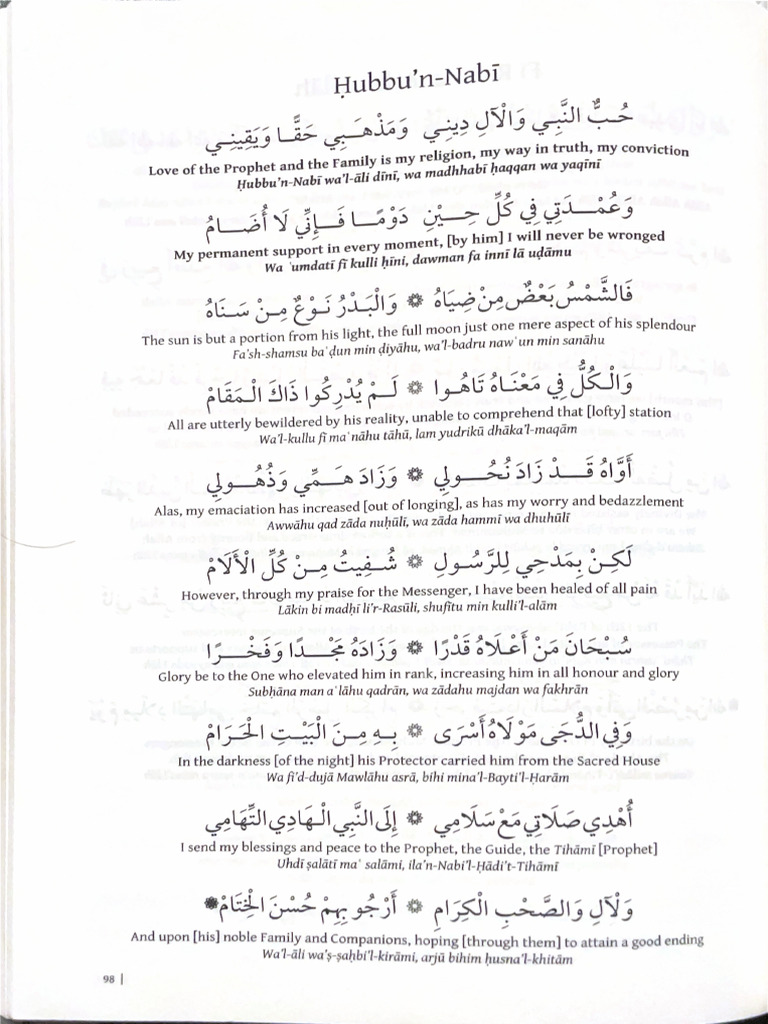 Ḥubbu'n-Nabī
حُبُّ النَّبِي وَالْآلِ دِينِي وَمَذْهَبِي حَقًّا وَيَقِينِي
Love of the Prophet and the Family is my religion, my way in truth, my conviction
Ḥubbu'n-Nabī wa'l-āli dīnī, wa madhhabī ḥaqqan wa yaqīnī
وَعُمْدَتِي فِي كُلِّ حِيْنِ دَوْمًا فَإِنِّي لَا أُضَامُ
My permanent support in every moment, [by him] I will never be wronged
Wa ʿumdatī fī kulli ḥīni, dawman fa innī lā uḍāmu
فَالشَّمْسُ بَعْضٌ مِنْ ضِيَاهُ ۞ وَالْبَدْرُ نَوْعٌ مِنْ سَنَاهُ
The sun is but a portion from his light, the full moon just one mere aspect of his splendour
Fa'sh-shamsu baʿḍun min ḍiyāhu, wa'l-badru nawʿun min sanāhu
وَالْكُلُّ فِي مَعْنَاهُ تَاهُوا ۞ لَمْ يُدْرِكُوا ذَاكَ الْمَقَامْ
All are utterly bewildered by his reality, unable to comprehend that [lofty] station
Wa'l-kullu fī maʿnāhu tāhū, lam yudrikū dhāka'l-maqām
أَوَّاهُ قَدْ زَادَ نُحُولِي ۞ وَزَادَ هَمِّي وَذُهُولِي
Alas, my emaciation has increased [out of longing], as has my worry and bedazzlement
Awwāhu qad zāda nuḥūlī, wa zāda hammī wa dhuhūlī
لَكِنْ بِمَدْحِي لِلرَّسُولِ ۞ شُفِيتُ مِنْ كُلِّ الْأَلَامْ
However, through my praise for the Messenger, I have been healed of all pain
Lākin bi madḥī li'r-Rasūli, shufītu min kulli'l-alām
سُبْحَانَ مَنْ أَعْلَاهُ قَدْرًا ۞ وَزَادَهُ مَجْدًا وَفَخْرًا
Glory be to the One who elevated him in rank, increasing him in all honour and glory
Subḥāna man aʿlāhu qadrān, wa zādahu majdan wa fakhrān
وَفِي الدُّجَى مَوْلَاهُ أَسْرَى ۞ بِهِ مِنَ الْبَيْتِ الْحَرَامْ
In the darkness [of the night] his Protector carried him from the Sacred House
Wa fi'd-dujā Mawlāhu asrā, bihi mina'l-Bayti'l-Ḥarām
أُهْدِي صَلَاتِي مَعْ سَلَامِي ۞ إِلَى النَّبِي الْهَادِي التِّهَامِي
I send my blessings and peace to the Prophet, the Guide, the Tihāmī [Prophet]
Uhdī ṣalātī maʿ salāmī, ila'n-Nabi'l-Hādi't-Tihāmī
وَلْآلِ وَالصَّحْبِ الْكِرَامِ ۞ أَرْجُو بِهِمْ حُسْنَ الْخِتَامْ ۞
And upon [his] noble Family and Companions, hoping [through them] to attain a good ending
Wa'l-āli wa'ṣ-ṣaḥbi'l-kirāmi, arjū bihim ḥusna'l-khitām
98 |